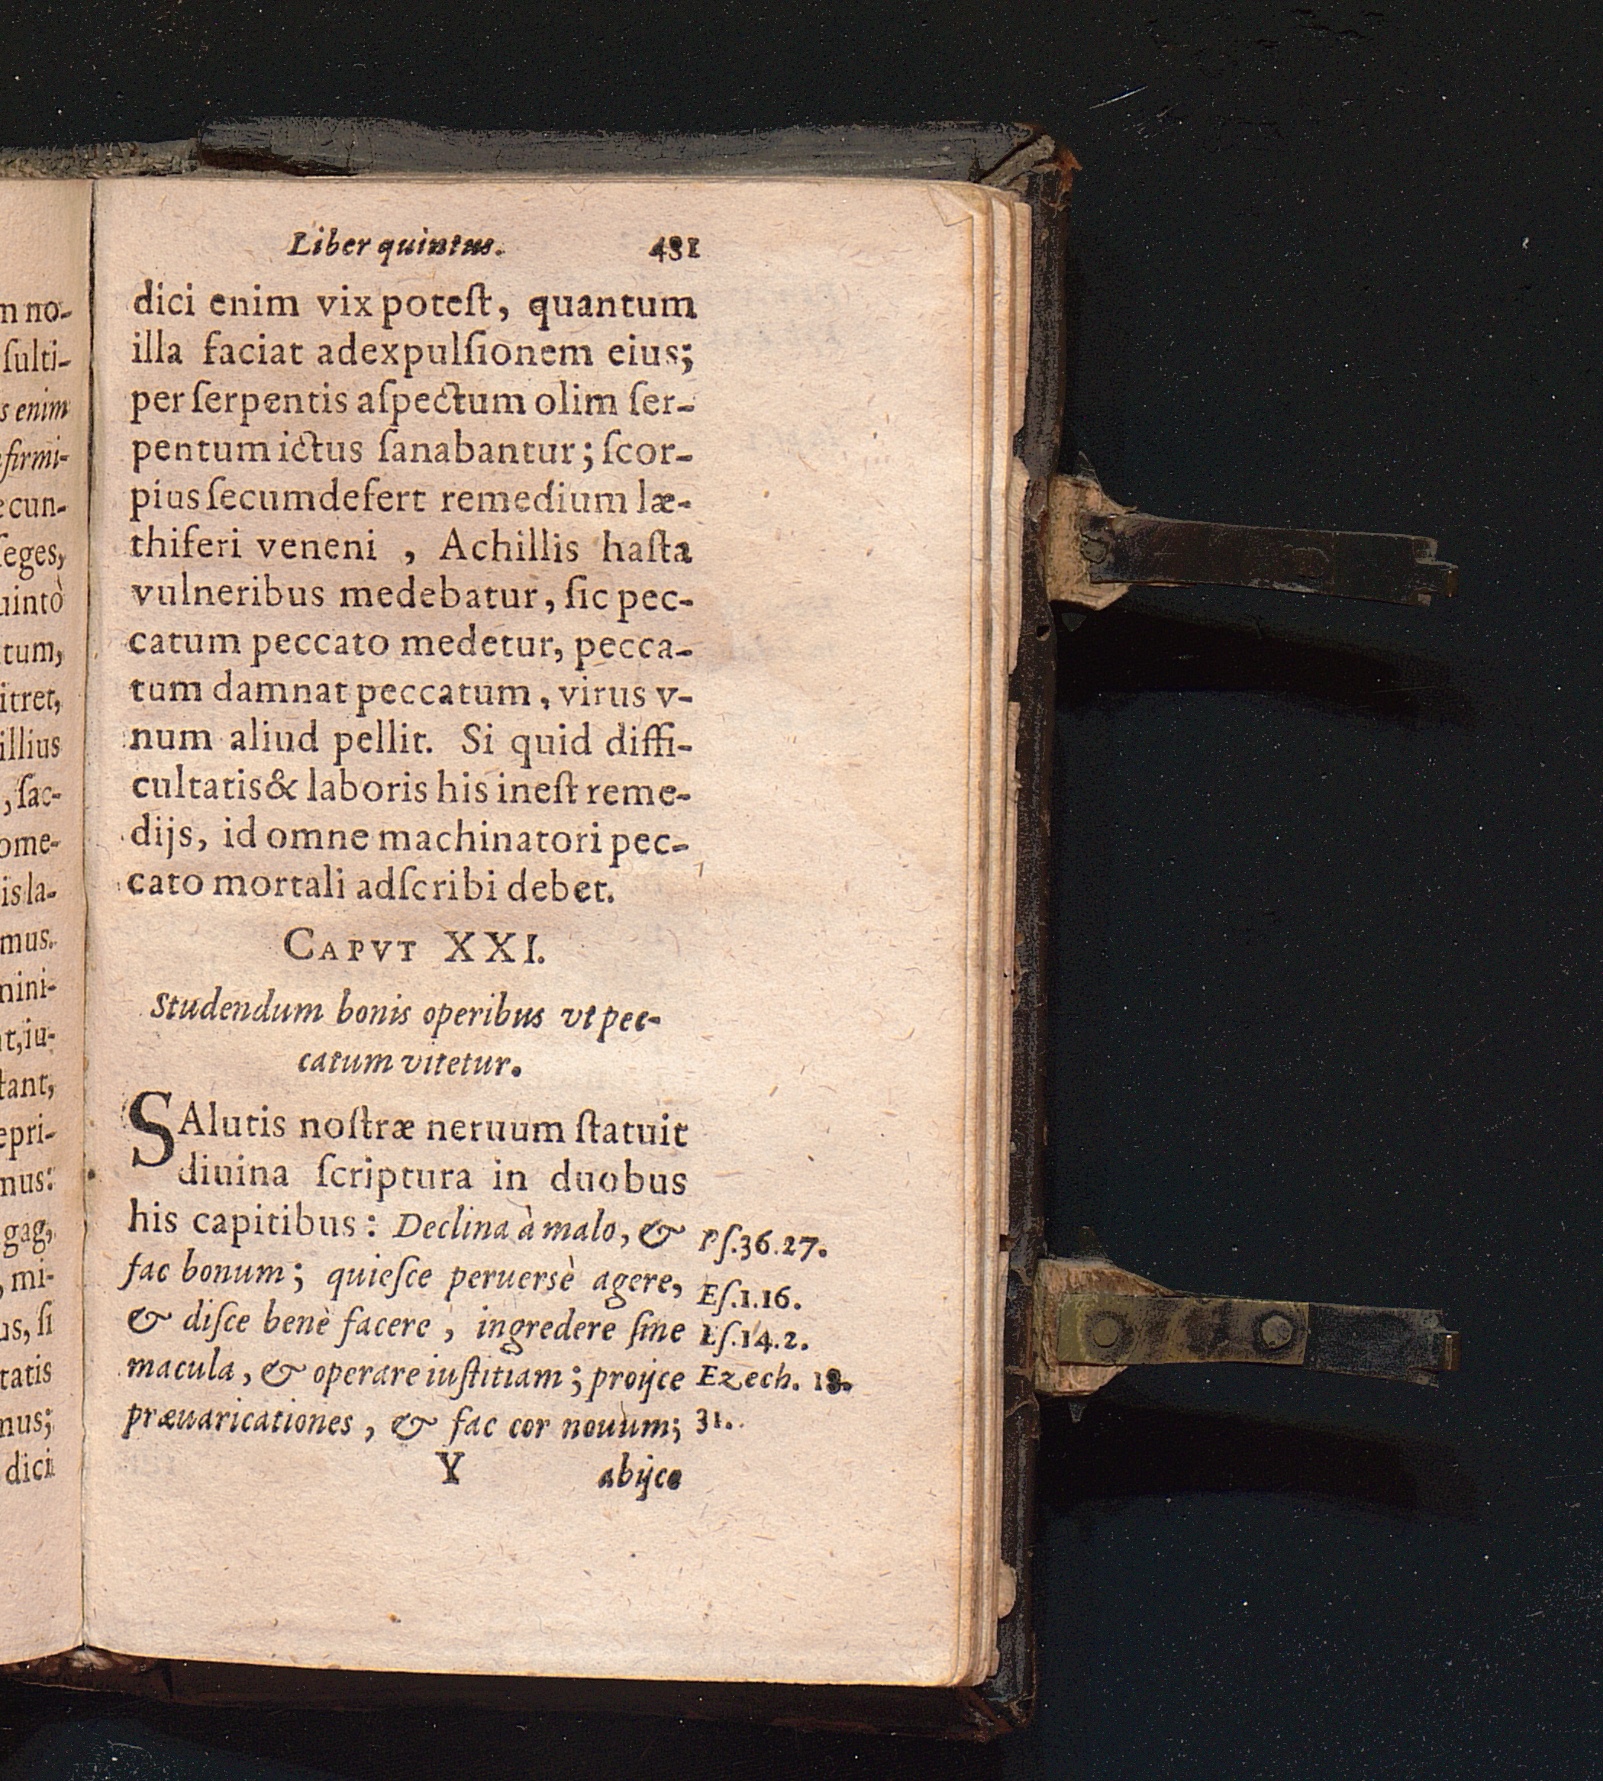 n no-
ſulti-
s enim
firmi-
ecun-
ſeges,
uintò
tum,
itret,
illius
, ſac-
ome-
is la-
mus.
nini-
t, iu-
tant,
epri-
nus:
gag,
, mi-
us, ſi
tatis
nus;
dici
Liber quintus. 481
dici enim vix poteſt, quantum
illa faciat ad expulſionem eius;
per ſerpentis aſpectum olim ſer-
pentum ictus ſanabantur; ſcor-
pius ſecum defert remedium læ-
thiferi veneni , Achillis haſta
vulneribus medebatur, ſic pec-
catum peccato medetur, pecca-
tum damnat peccatum, virus v-
num aliud pellit. Si quid diffi-
cultatis & laboris his ineſt reme-
dijs, id omne machinatori pec-
cato mortali adſcribi debet.
CAPVT XXI.
Studendum bonis operibus vt pec-
catum vitetur.
SAlutis noſtræ neruum ſtatuit
diuina ſcriptura in duobus
his capitibus: Declina à malo, & Pſ.36.27.
fac bonum; quieſce peruersè agere, Eſ.1.16.
& diſce benè facere , ingredere ſine Eſ.14.2.
macula, & operare iuſtitiam; proijce Ezech. 18.
præuaricationes , & fac cor nouum; 31.
Y abijce